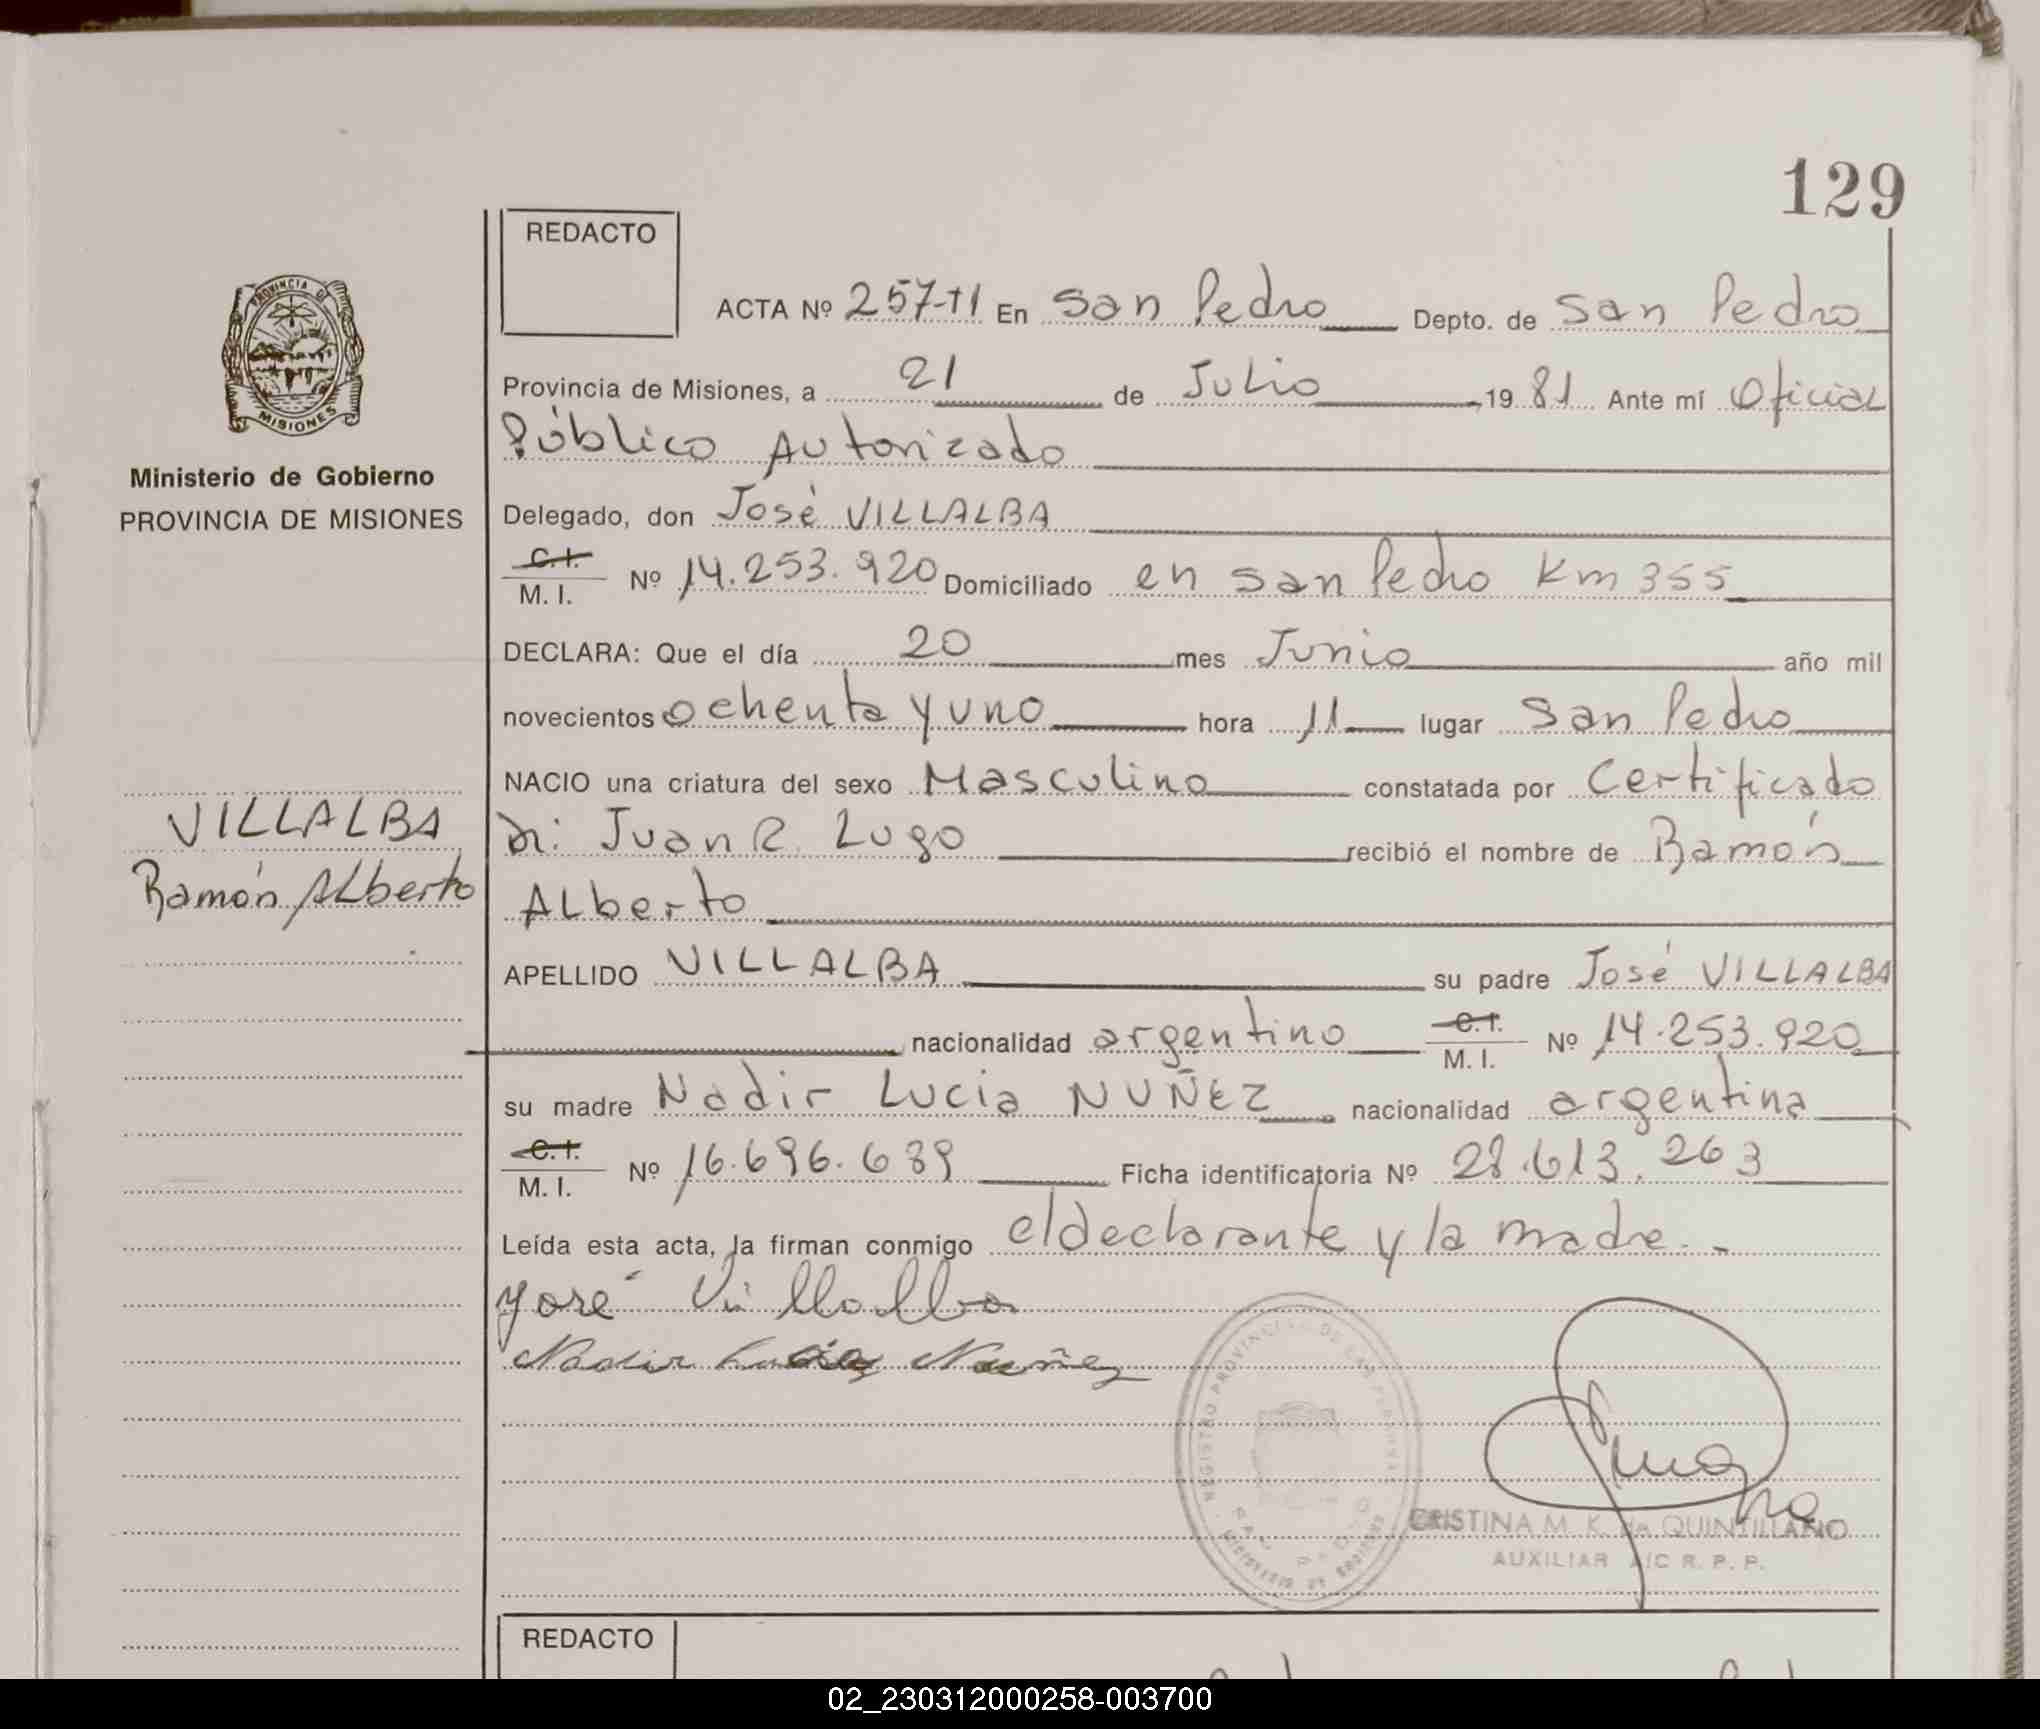 129
REDACTO
ACTA Nº 257-TI En San Pedro Depto. de San Pedro
Provincia de Misiones, a 21 de Julio 1981 Ante mí Oficial
Público Autorizado
PROVINCIA DE
MISIONES
Ministerio de Gobierno
PROVINCIA DE MISIONES
Delegado, don José VILLALBA
C.I.
M. I. Nº 14.253.920 Domiciliado en San Pedro Km 355
DECLARA: Que el día 20 mes Junio año mil
novecientos ochenta y uno hora 11 lugar San Pedro
NACIO una criatura del sexo Masculino constatada por Certificado
Juan R. Lugo recibió el nombre de Ramón
Alberto
VILLALBA
Ramón Alberto
APELLIDO VILLALBA su padre José VILLALBA
nacionalidad argentino C.I.
M. I. Nº 14.253.920
su madre Nadir Lucia NUÑEZ nacionalidad argentina
C.I.
M. I. Nº 16.696.689 Ficha identificatoria Nº 28.613.263
Leída esta acta, la firman conmigo el declarante y la madre.-
José Villalba
Nadir Lucia Nuñez
REGISTRO PROVINCIAL DE LAS PERSONAS
CRISTINA M. K. de QUINTILLANO
AUXILIAR A/C R. P. P.
REDACTO
02_230312000258-003700